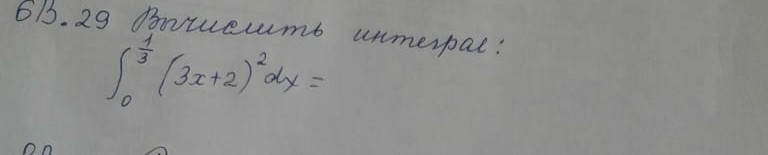 6В.29 Вычислить интеграл:
∫₀^{1/3} (3x+2)² dx =